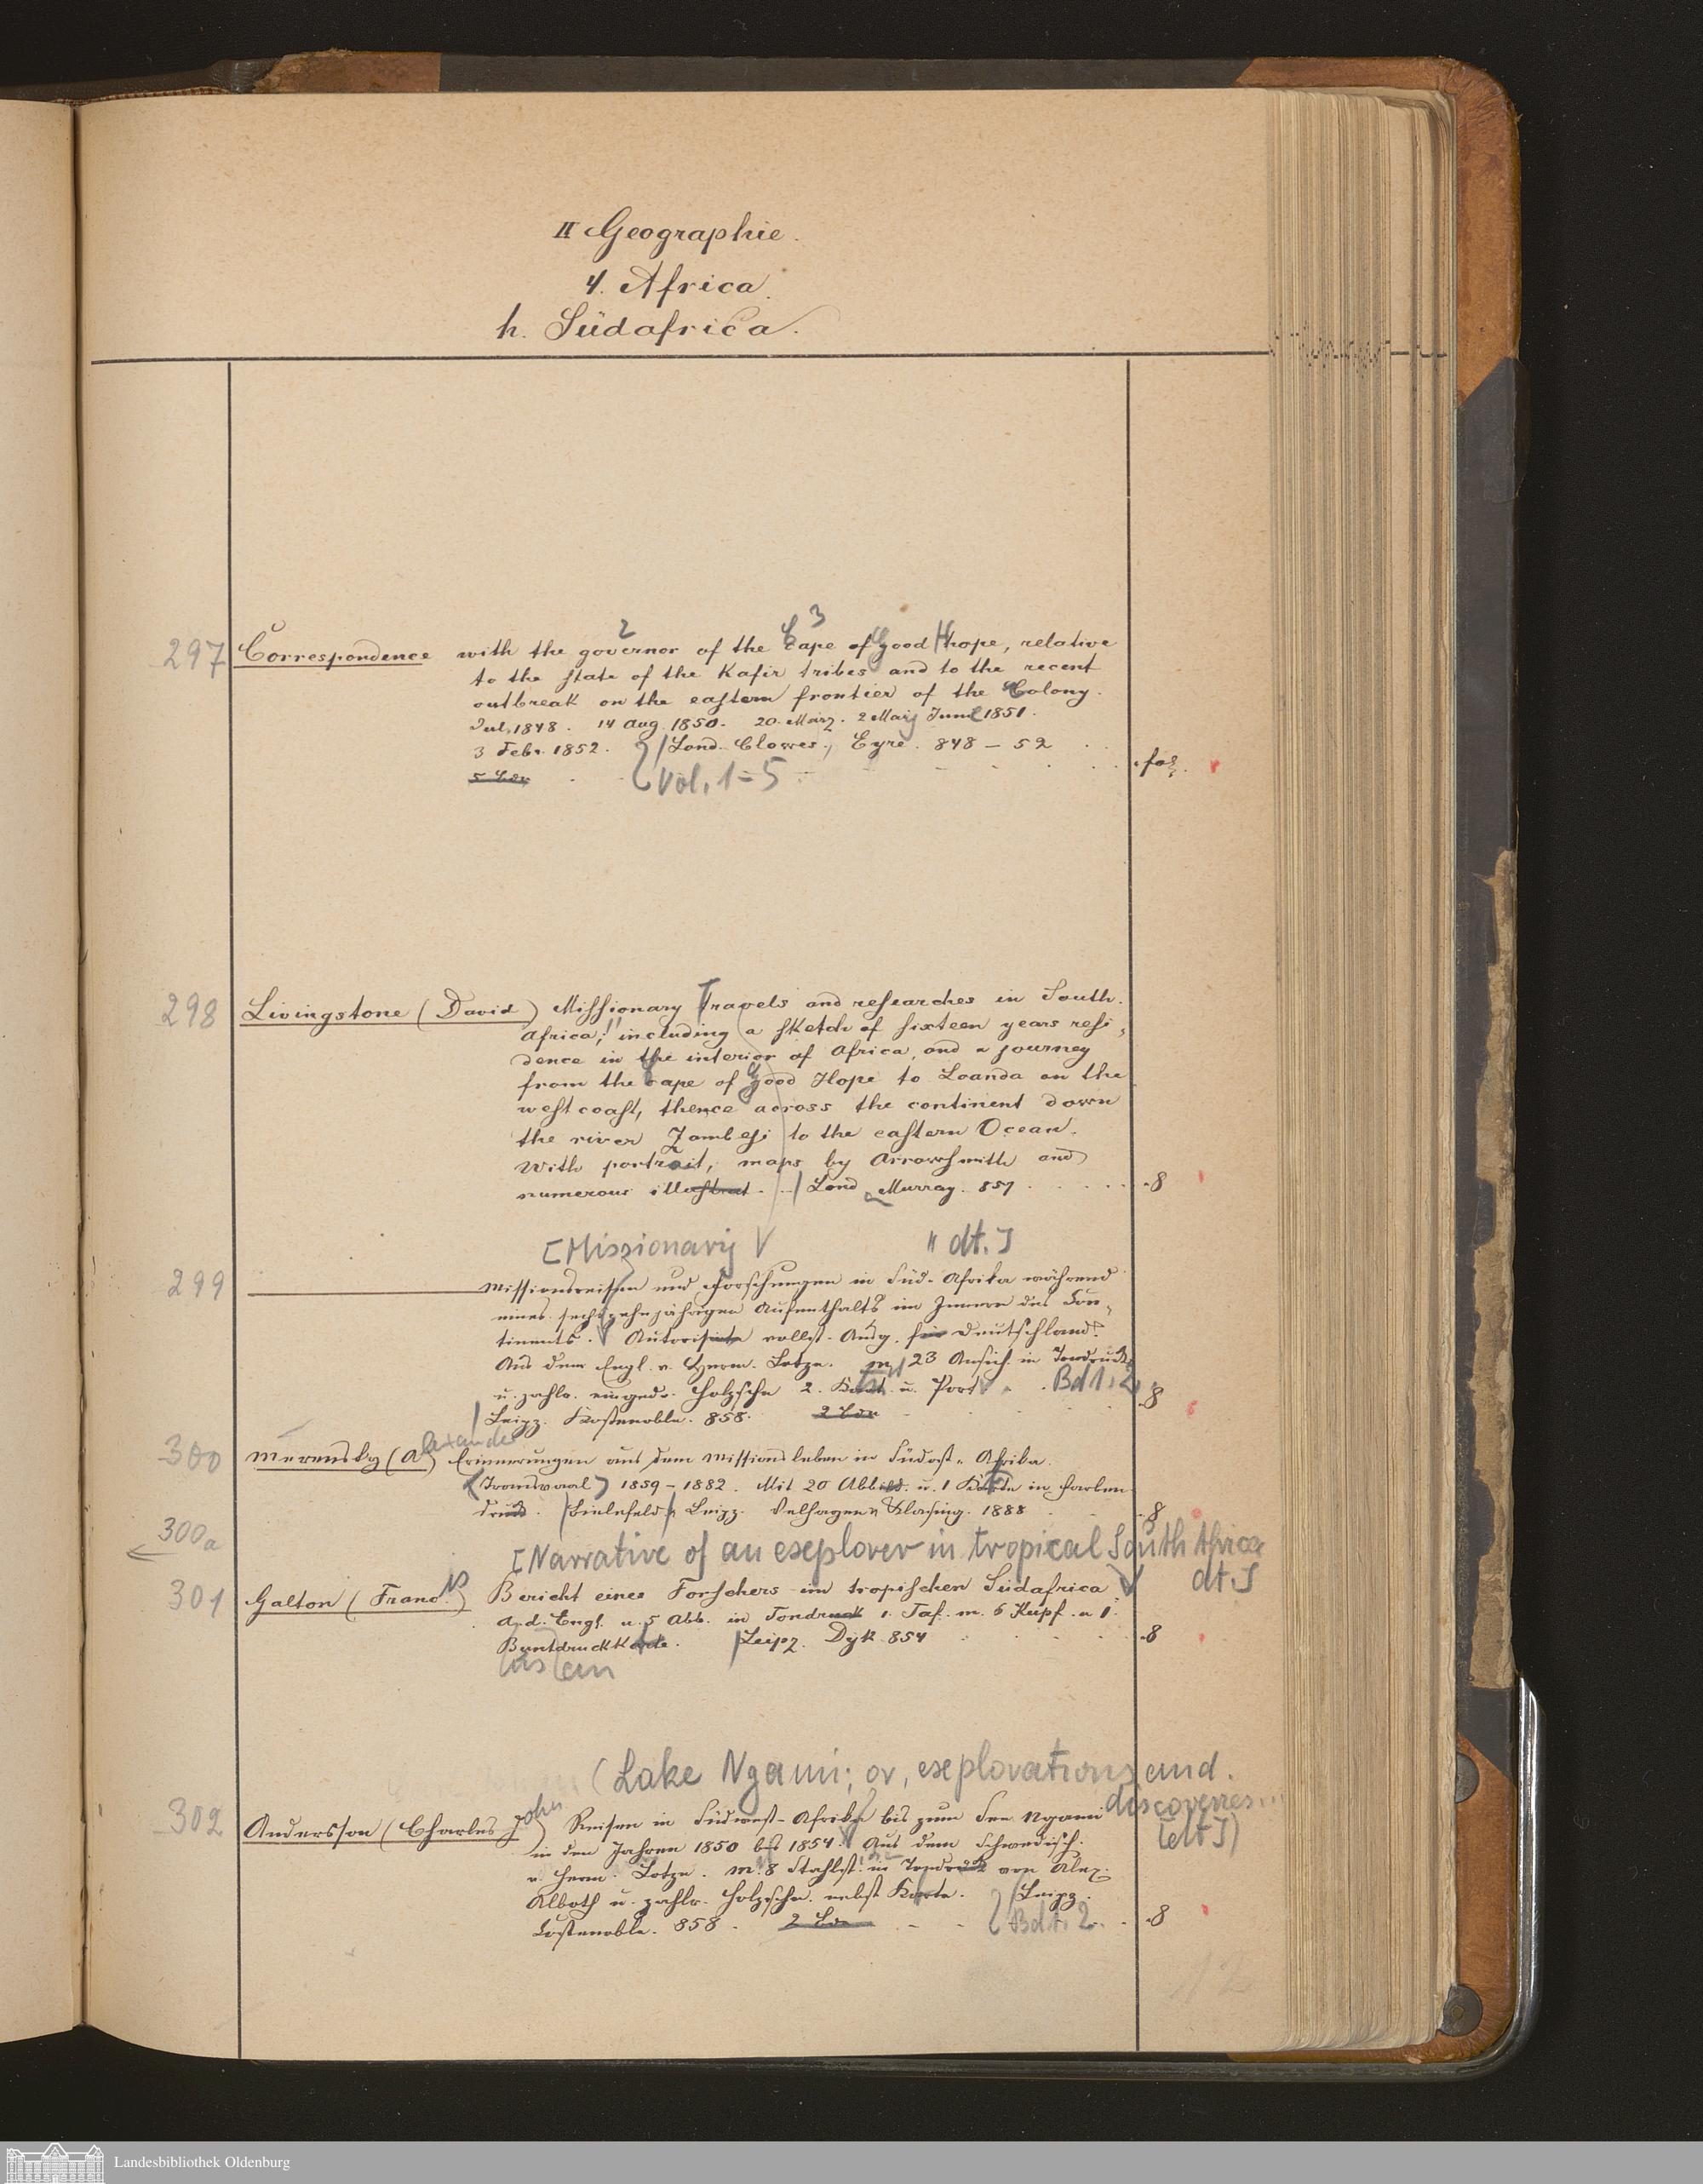 II Geographie.
4. Africa.
h. Südafrica.
297 Correspondence with the governor of the Cape of Good Hope, relative
2 3
to the state of the Kafir tribes and to the recent
outbreak on the eastern frontier of the Colony.
Jul. 1848. 14 Aug. 1850. 20. März. 2 May June 1851.
3 Febr. 1852. Lond. Clowes, Eyre. 848 – 52
5 Bde Vol. 1-5 fol.
298 Livingstone (David) Missionary Travels and researches in South.
Africa; including a sketch of sixteen years resi-
dence in the interior of Africa, and a journey
from the Cape of Good Hope to Loanda on the
west coast, thence across the continent down
the river Zambesi to the eastern Ocean.
With portrait, maps by Arrowsmith and
numerous illustrat. Lond. Murray. 857 8
[Missionary " dt.]
299 Missionsreisen und Forschungen in Süd-Afrika während
eines sechszehnjährigen Aufenthalts im Innern des Con-
tinents. Autorisirte vollst. Ausg. für Deutschland.
Aus dem Engl. v. Herm. Lotze. m. 23 Ansich. in Tondruck
u. zahlr. eingedr. Holzschn 2. Kart u. Port Bd 1. 2. 8
Leipz. Kostenoble. 858. 2 Bde
300 Merensky (Alexander) Erinnerungen aus dem Missionsleben in Südost-Afrika
(Transvaal) 1859-1882. Mit 20 Abbild. u. 1 Karte in Farben
druck. Bielefeld, Leipz. Velhagen u Klasing. 1888 8
300a
[Narrative of an explorer in tropical South Africa
dt.]
301 Galton (Francis) Bericht eines Forschers im tropischen Südafrica
A. d. Engl. u. 5 Abb. in Tondruck 1. Taf. m. 6 Kupf. u 1
Buntdruckkarte. Leipz. Dyk 854 8
(Lake Ngami; or, explorations and
discoveries...
302 Andersson (Charles John) Reisen in Südwest-Afrika bis zum See Ngami
[dt])
in den Jahren 1850 bis 1854. Aus dem Schwedisch.
v. Herm. Lotze. m. 8 Stahlst. in Tondruck von Alex.
Alboth u. zahlr. Holzschn. nebst Karte. Leipz.
Costenoble. 858. 2 Bde Bd 1. 2. 8
Landesbibliothek Oldenburg